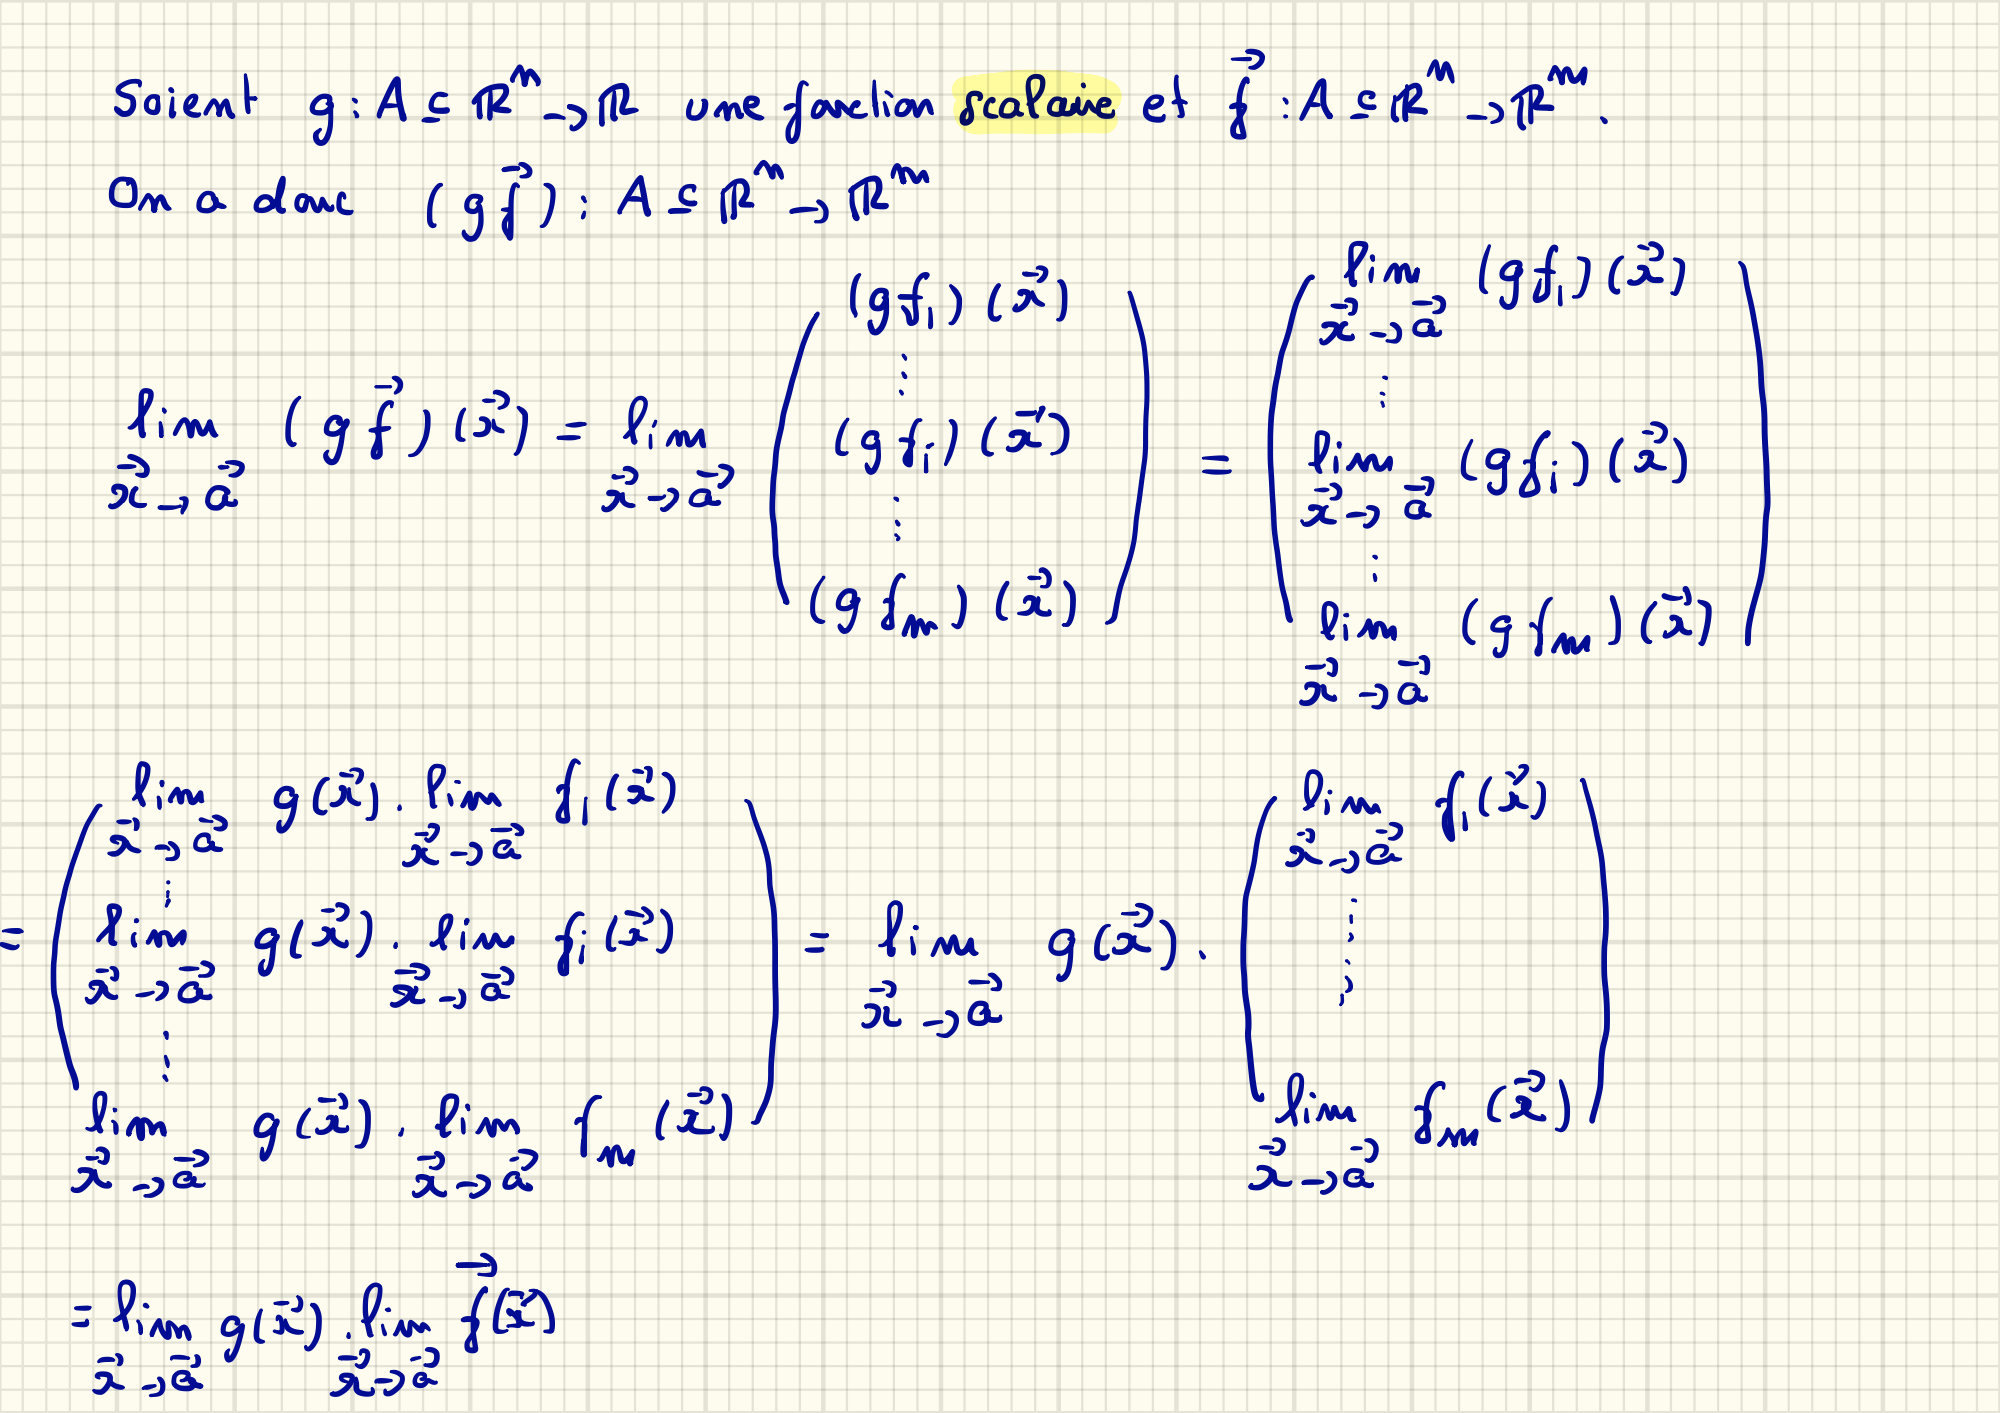 Soient g : A ⊆ ℝⁿ → ℝ une fonction scalaire et $\vec{f}$ : A ⊆ ℝⁿ → ℝᵐ.
On a donc $(g\vec{f})$ : A ⊆ ℝⁿ → ℝᵐ
$\lim_{\vec{x} \to \vec{a}} (g\vec{f})(\vec{x}) = \lim_{\vec{x} \to \vec{a}} \begin{pmatrix} (gf_1)(\vec{x}) \\ \vdots \\ (gf_i)(\vec{x}) \\ \vdots \\ (gf_m)(\vec{x}) \end{pmatrix} = \begin{pmatrix} \lim_{\vec{x} \to \vec{a}} (gf_1)(\vec{x}) \\ \vdots \\ \lim_{\vec{x} \to \vec{a}} (gf_i)(\vec{x}) \\ \vdots \\ \lim_{\vec{x} \to \vec{a}} (gf_m)(\vec{x}) \end{pmatrix}$
$= \begin{pmatrix} \lim_{\vec{x} \to \vec{a}} g(\vec{x}) . \lim_{\vec{x} \to \vec{a}} f_1(\vec{x}) \\ \vdots \\ \lim_{\vec{x} \to \vec{a}} g(\vec{x}) . \lim_{\vec{x} \to \vec{a}} f_i(\vec{x}) \\ \vdots \\ \lim_{\vec{x} \to \vec{a}} g(\vec{x}) . \lim_{\vec{x} \to \vec{a}} f_m(\vec{x}) \end{pmatrix} = \lim_{\vec{x} \to \vec{a}} g(\vec{x}) . \begin{pmatrix} \lim_{\vec{x} \to \vec{a}} f_1(\vec{x}) \\ \vdots \\ \lim_{\vec{x} \to \vec{a}} f_m(\vec{x}) \end{pmatrix}$
$= \lim_{\vec{x} \to \vec{a}} g(\vec{x}) . \lim_{\vec{x} \to \vec{a}} \vec{f}(\vec{x})$